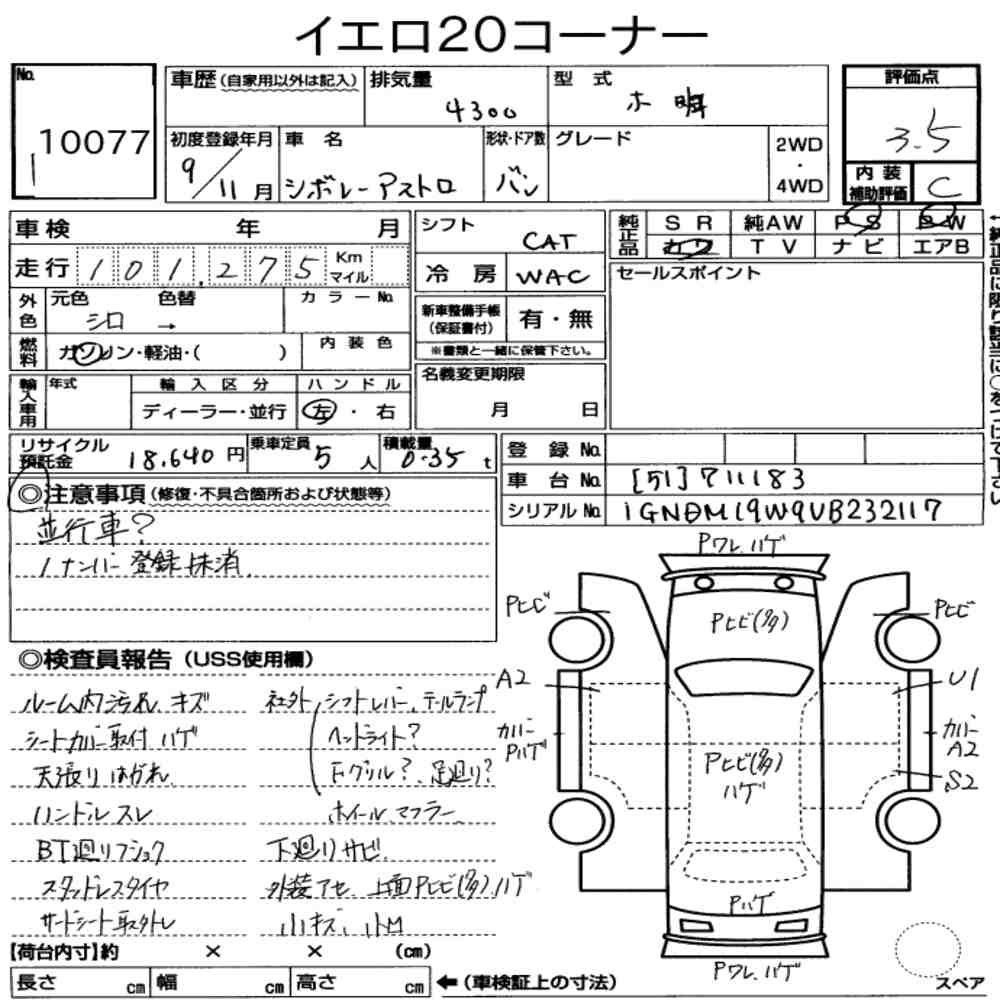 イエロ20コーナー
No. 10077
車歴(自家用以外は記入)
排気量 4300
型式 不明
評価点 3.5
初度登録年月 9/11月
車名 シボレーアストロ
形状・ドア数 バン
グレード
2WD・4WD
内装補助評価 C
車検 年 月
走行 101,275 Km マイル
シフト CAT
冷房 WAC
純正品 SR 純AW PS PW
カワ TV ナビ エアB
セールスポイント
外色 元色 シロ → 色替
カラーNo.
燃料 ガソリン・軽油・( )
内装色
新車整備手帳(保証書付) 有・無
※書類と一緒に保管下さい。
輸入車用 年式
輸入区分 ディーラー・並行
ハンドル 左・右
名義変更期限 月 日
リサイクル預託金 18,640円
乗車定員 5人
積載量 0.35t
登録No.
車台No. [51]711183
シリアルNo. 1GNDM19W9VB232117
◎注意事項(修復・不具合箇所および状態等)
並行車?
1ナンバー登録抹消
◎検査員報告(USS使用欄)
ルーム内汚れ、キズ
シートカバー取付 ハゲ
天張りはがれ
ハンドルスレ
BT廻りフショク
スタッドレスタイヤ
サードシート取外し
社外 シフトレバー、テールランプ
ヘッドライト?
Fグリル? 足廻り?
ホイールマフラー
下廻りサビ
外装アセ、上面Pヒビ(多)、ハゲ
小キズ、小M
Pワレ、ハゲ
Pヒビ
Pヒビ(多)
Pヒビ
A2
U1
カバーPハゲ
Pヒビ(多)ハゲ
カバーA2
S2
Pハゲ
Pワレ、ハゲ
スペア
【荷台内寸】約 × × (cm)
長さ cm 幅 cm 高さ cm ←(車検証上の寸法)